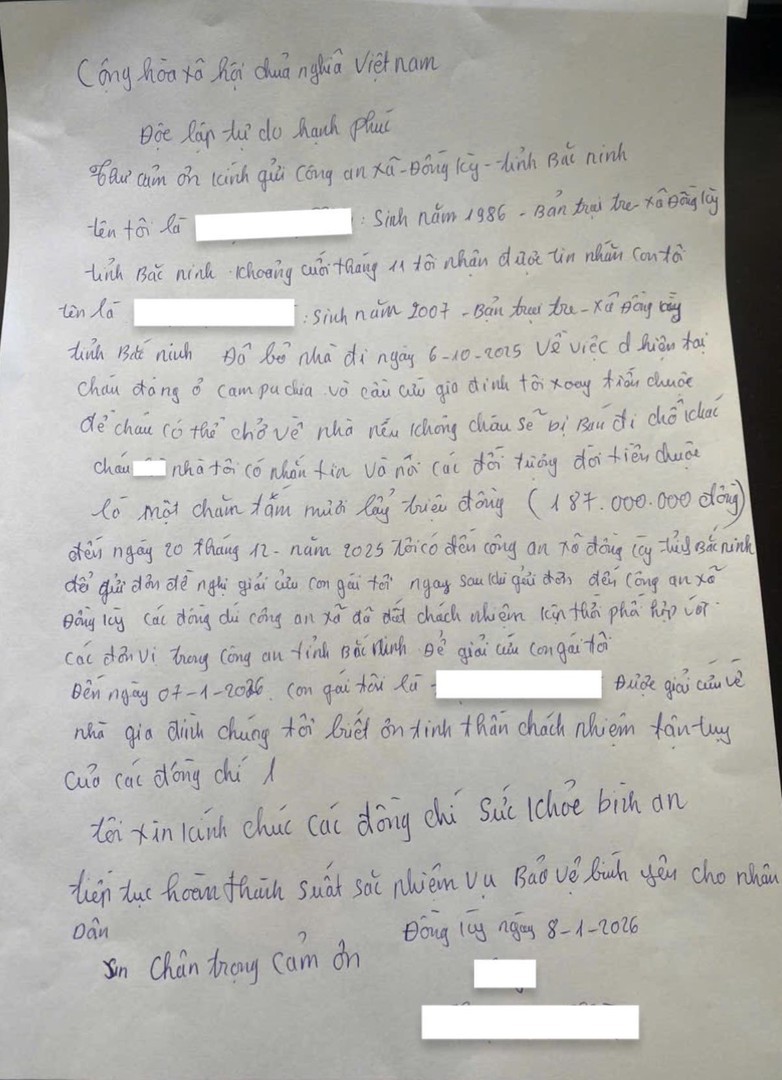 Cộng hòa xã hội chủa nghĩa Việt nam
Độc lập tự do hạnh phúc
Thư cảm ơn kính gửi Công an xã - Đồng Kỳ - tỉnh Bắc ninh
tên tôi là : Sinh năm 1986 - Bản trại tre - xã Đồng Kỳ
tỉnh Bắc ninh khoảng cuối tháng 11 tôi nhận được tin nhắn con tôi
tên là : Sinh năm 2007 - Bản trại tre - xã Đồng Kỳ
tỉnh Bắc ninh Đã bỏ nhà đi ngày 6-10-2025 Về việc hiện tại
cháu đang ở campuchia và cầu cứu gia đình tôi xoay tiền chuộc
để cháu có thể chở về nhà nếu không cháu sẽ bị Bán đi chỗ khác
cháu nhà tôi có nhắn tin và nói các đối tượng đòi tiền chuộc
là một chăm tắm mươi bẩy triệu đồng (187.000.000 đồng)
đến ngày 20 tháng 12 - năm 2025 tôi có đến công an xã đồng kỳ tỉnh Bắc ninh
để gửi đơn đề nghị giải cứu con gái tôi ngay sau khi gửi đơn đến Công an xã
Đồng Kỳ các đồng chí công an xã đã rất chách nhiệm kịp thời phối hợp với
các đơn vi trong Công an tỉnh Bắc Ninh Để giải cứu con gái tôi
Đến ngày 07-1-2026. con gái tôi là Được giải cứu về
nhà gia đình chúng tôi biết ơn tinh thần chách nhiệm tận tuy
của các đồng chí
tôi xin kính chúc các đồng chí sức khỏe bình an
tiếp tục hoàn thành suất sắc nhiệm vụ Bảo vệ bình yên cho nhân
Dân
Đồng kỳ ngày 8-1-2026
xin Chân trọng cảm ơn